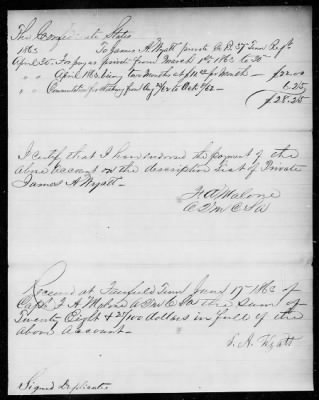 The Confederate States
1863 To James A Wyatt private Co. D 37 Tenn Regt
April 30. For pay as private from March 1st 1863 to 30th
" " April 1863 being two Months at $11.00 pr Month — $22.00
" " Commutation for clothing from Aug 7/62 to Oct 8/62 — 6.25
$28.25
I certify that I have endorsed the payment of the
above account on the descriptive List of Private
James A Wyatt —
F. A. Malone
A Q M C S A
Received at Fairfield Tenn June 17 1863 of
Capt. F. A. Malone A Q M C S A the sum of
Twenty Eight & 25/100 dollars in full of the
above account —
J. A. Wyatt
Signed Duplicates